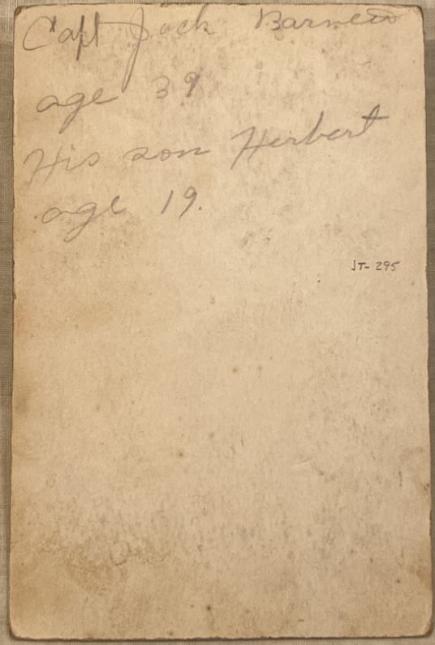 Capt Jack Barnett
age 39
His son Herbert
age 19.
JT- 295